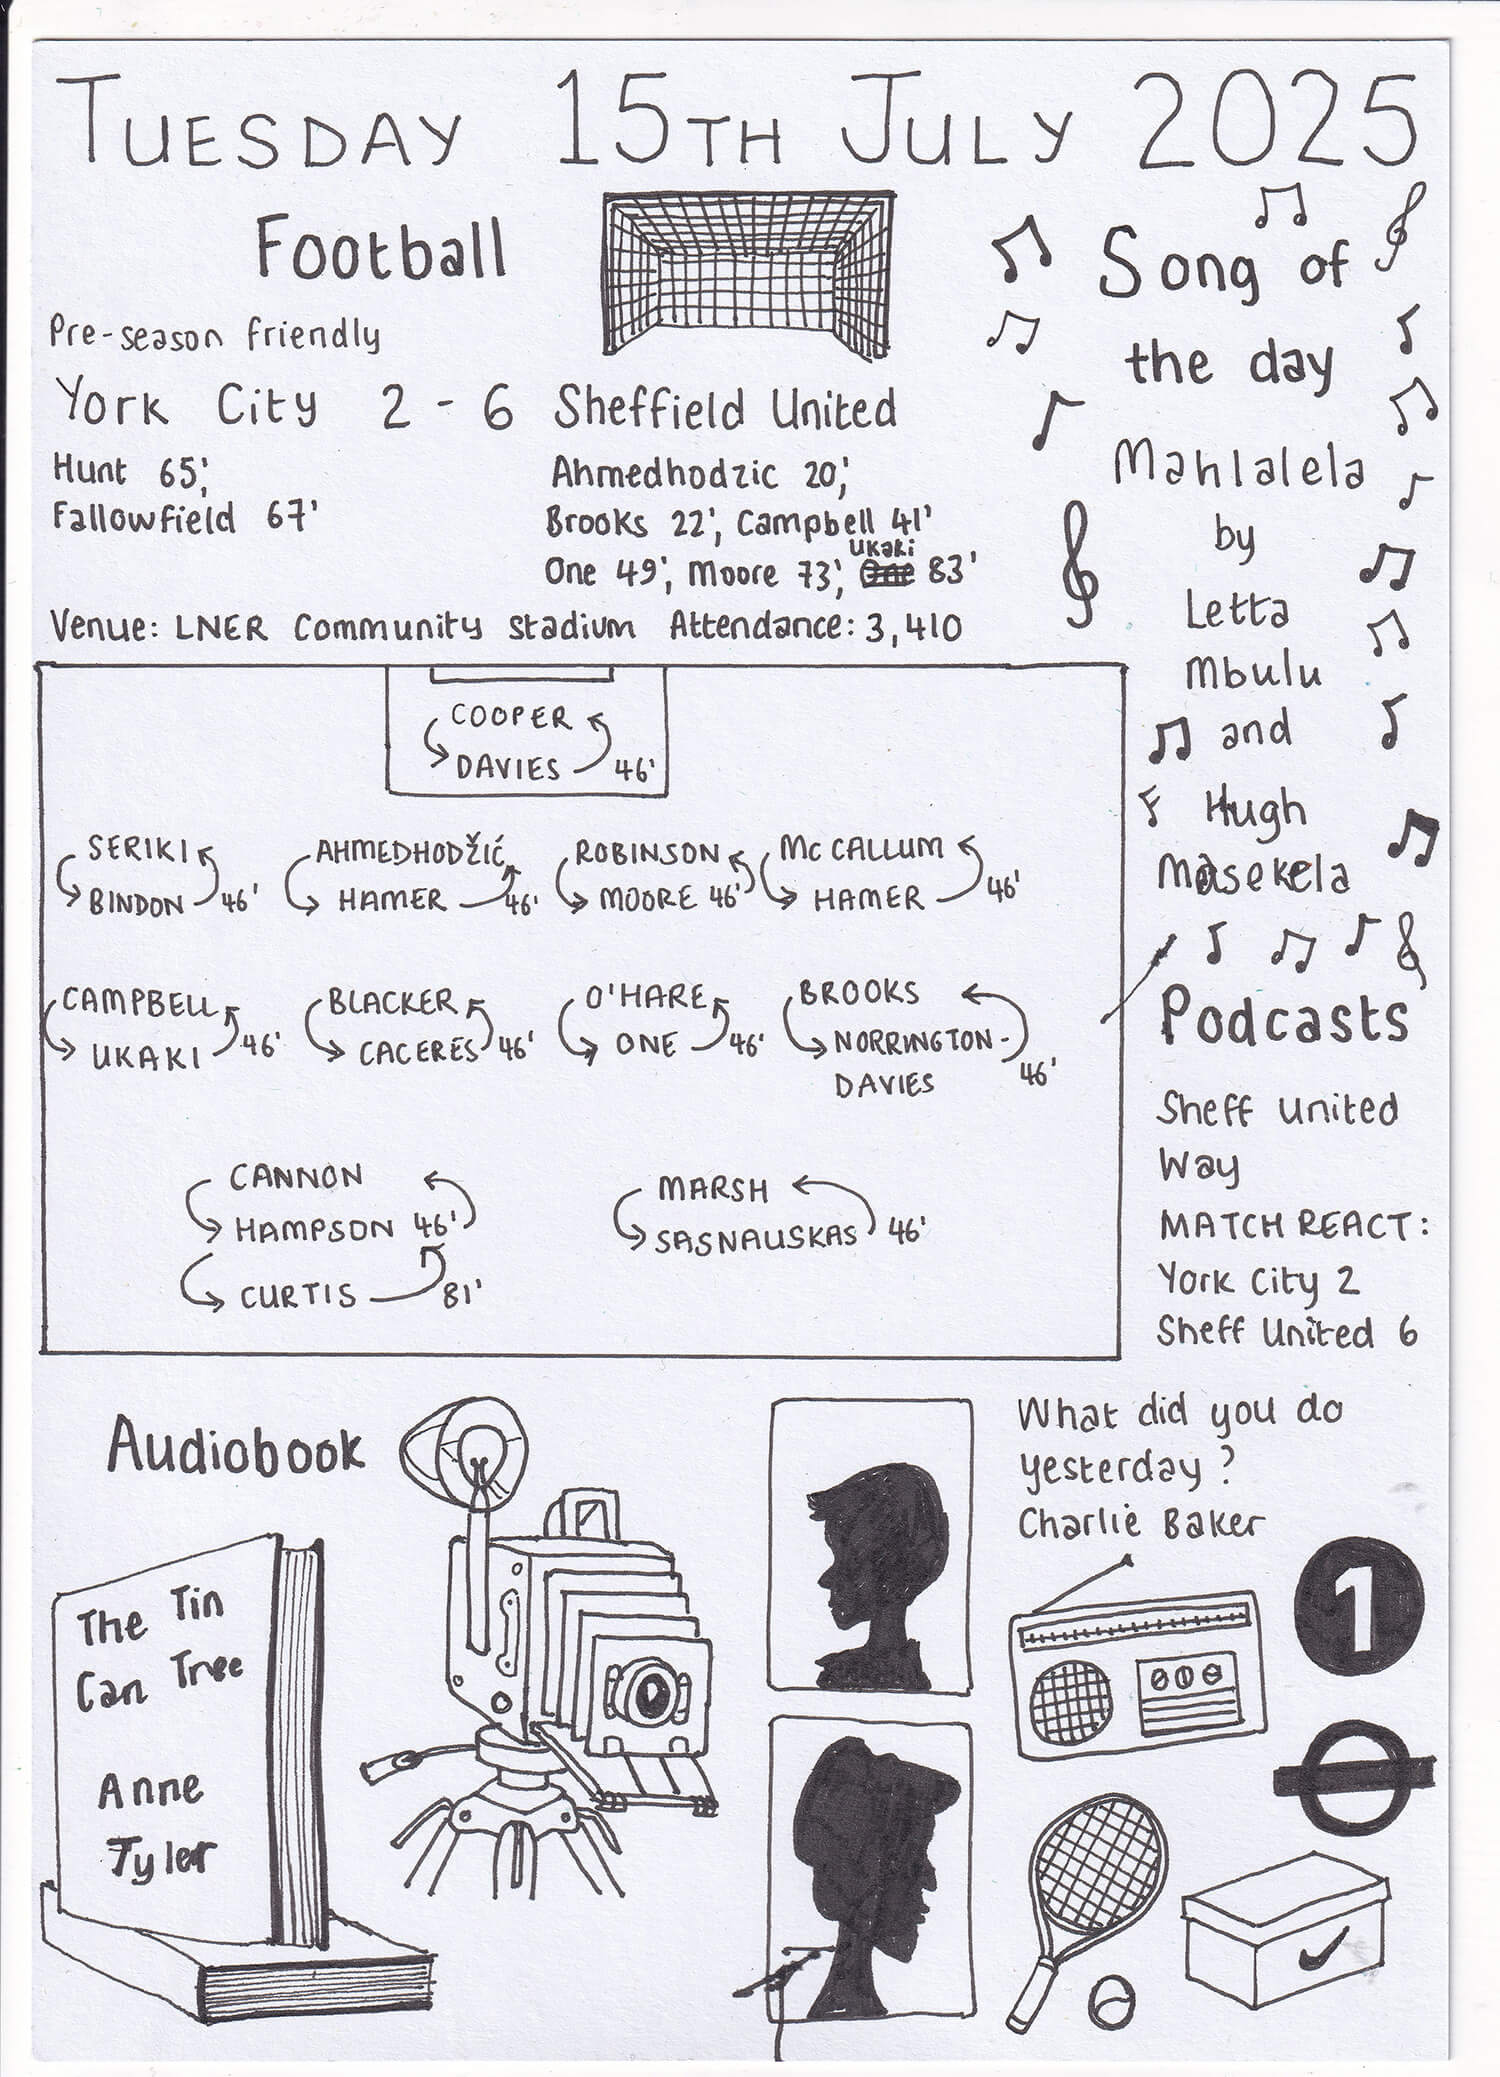 TUESDAY 15TH JULY 2025
Football
Pre-season friendly
York City 2 - 6 Sheffield United
Hunt 65',
Fallowfield 67'
Ahmedhodzic 20',
Brooks 22', Campbell 41'
Ukaki
One 49', Moore 73', One 83'
Venue: LNER Community Stadium Attendance: 3,410
COOPER
DAVIES 46'
SERIKI
BINDON 46'
AHMEDHODŽIĆ
HAMER 46'
ROBINSON
MOORE 46'
McCALLUM
HAMER 46'
CAMPBELL
UKAKI 46'
BLACKER
CACERES 46'
O'HARE
ONE 46'
BROOKS
NORRINGTON-
DAVIES 46'
CANNON
HAMPSON 46'
CURTIS 81'
MARSH
SASNAUSKAS 46'
Song of
the day
Mahlalela
by
Letta
Mbulu
and
Hugh
Masekela
Podcasts
Sheff United
Way
MATCH REACT:
York City 2
Sheff United 6
What did you do
yesterday?
Charlie Baker
1
Audiobook
The Tin
Can Tree
Anne
Tyler